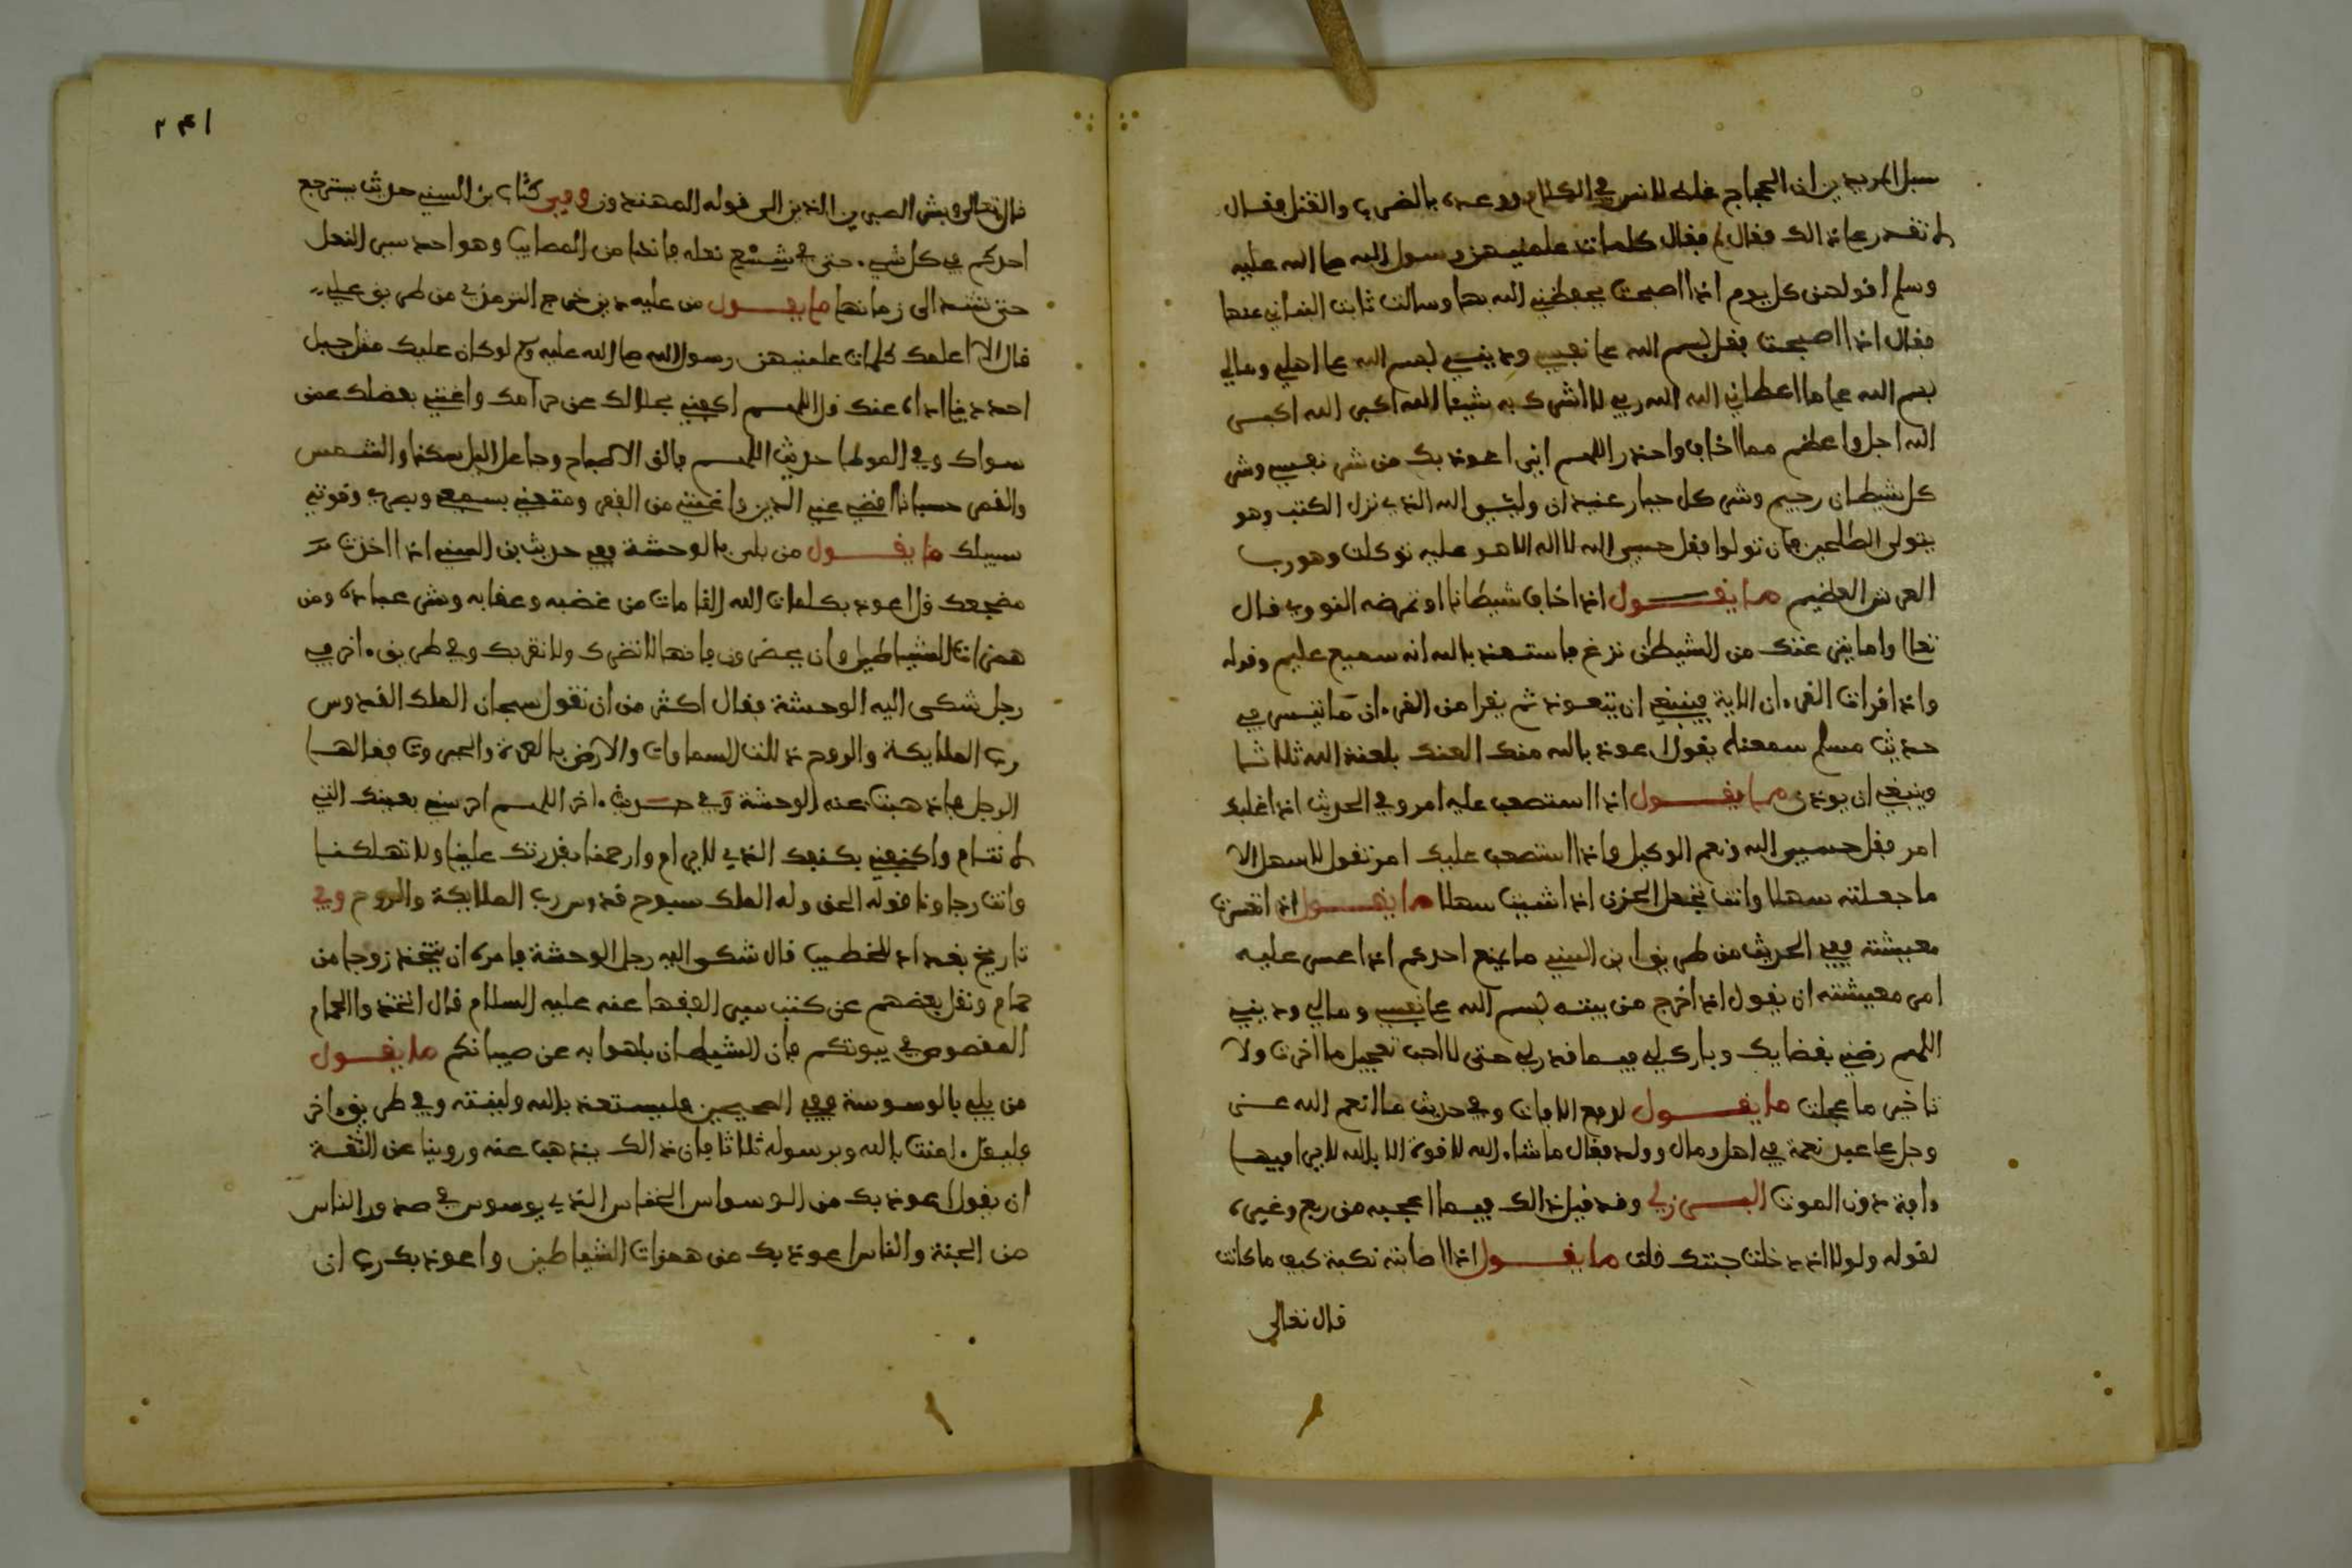 سبل الخير بن ان الحجاج غلظ لانس في الكلام ووعده بالضرب والقتل فقال
لم تقدر على ذالك فقال لم فقال كلمات علمنيهن رسول الله صلى الله عليه
وسلم اقولهن كل يوم اذا اصبحت يحفظني الله بها وسالت ثابت البناني عنها
فقال اذا اصبحت فقل بسم الله على نفسي وديني بسم الله على اهلي ومالي
بسم الله على ما اعطاني الله الله ربي لا اشرك به شيئا الله اكبر الله اكبر
الله اجل واعظم مما اخاف واحذر اللهم اني اعوذ بك من شر نفسي وشر
كل شيطان رجيم وشر كل جبار عنيد ان وليي الله الذي نزل الكتب وهو
يتولى الصالحين فان تولوا فقل حسبي الله لا اله الا هو عليه توكلت وهو رب
العرش العظيم ما يقول اذا خاف شيطانا او تعرضه النووي قال
تعالى واما ينزغنك من الشيطن نزغ فاستعذ بالله انه سميع عليم وقوله
واذا قرات القرءان الاية فينبغي ان يتعوذ ثم يقرا من القرءان ما تيسر في
حديث مسلم سمعناه يقول اعوذ بالله منك العنك بلعنة الله ثلاثا
وينبغي ان يوذن ما يقول اذا استصعب عليه امر وفي الحديث اذا غلبك
امر فقل حسبي الله ونعم الوكيل واذا استصعب عليك امر تقول لا سهل الا
ما جعلته سهلا وانت تجعل الحزن اذا شيت سهلا ما يقول اذا تعسرت
معيشته ففي الحديث من طريق ابن السني ما يمنع احدكم اذا عسر عليه
امر معيشته ان يقول اذا خرج من بيته بسم الله على نفسي ومالي وديني
اللهم رضني بقضايك وبارك لي فيما قدر لي حتى لا احب تعجيل ما اخرت ولا
تاخير ما عجلت ما يقول لدفع الافات وفي حديث ما انعم الله عز
وجل على عبد نعمة في اهل ومال وولد فقال ما شاء الله لا قوة الا بالله لا يرى فيها
ءافة دون الموت البرزلي وقد قيل ذالك فيما اعجبه من ربع وغيره
لقوله ولولا اذ دخلت جنتك قلت ما يقول اذا اصابته نكبة كيف ما كانت
قال تعالى
٢٤١
قال تعالى وبشر الصبرين الذين الى قوله المهتدون وفي كتاب بن السني حديث يسترجع
احدكم في كل شيء حتى في شسع نعله فانها من المصايب وهو احد سير النعل
حتى تشد الى زمامها ما يقول من عليه دين خرج الترمذي من طريق علي
قال الا اعلمك كلمات علمنيهن رسول الله صلى الله عليه وسلم لو كان عليك مثل جبل
احد دينا اداه عنك قل اللهم اكفني بحلالك عن حرامك واغنني بفضلك عمن
سواك وفي الموطا حديث اللهم فالق الاصباح وجاعل اليل سكنا والشمس
والقمر حسبانا اقض عني الدين واغنني من الفقر ومتعني بسمعي وبصري وقوتي
سبيلك ما يقول من بلي بالوحشة ففي حديث بن السني اذا اخذت
مضجعك قل اعوذ بكلمات الله التامات من غضبه وعقابه وشر عباده ومن
همزات الشياطين وان يحضرون فانها لا تضرك ولا تقربك وفي طريق ءاخر في
رجل شكى اليه الوحشة فقال اكثر من ان تقول سبحان الملك القدوس
رب الملايكة والروح ذللت السماوات والارض بالعزة والجبروت فقالها
الرجل فاذهبت عنه الوحشة وفي حديث ءاخر اللهم احرسني بعينك التي
لا تنام واكنفني بكنفك الذي لا يرام وارحمنا بقدرتك علينا ولا تهلكنا
وانت رجاونا قوله الحق وله الملك سبوح قدوس رب الملايكة والروح وفي
تاريخ بغداد للخطيب قال شكى اليه رجل الوحشة فامره ان يتخذ زوجا من
حمام ونقل بعضهم عن كتب سير الفقها عنه عليه السلام قال اتخذوا الحمام
المقصوص في بيوتكم فان الشيطان يلهوا به عن صبيانكم ما يقول
من بلي بالوسوسة ففي الصحيحين فليستعذ بالله ولينته وفي طريق ءاخر
فليقل ءامنت بالله وبرسوله ثلاثا فان ذالك يذهب عنه وروينا عن الثقة
ان يقول اعوذ بك من الوسواس الخناس الذي يوسوس في صدور الناس
من الجنة والناس اعوذ بك من همزات الشياطين واعوذ بك رب ان